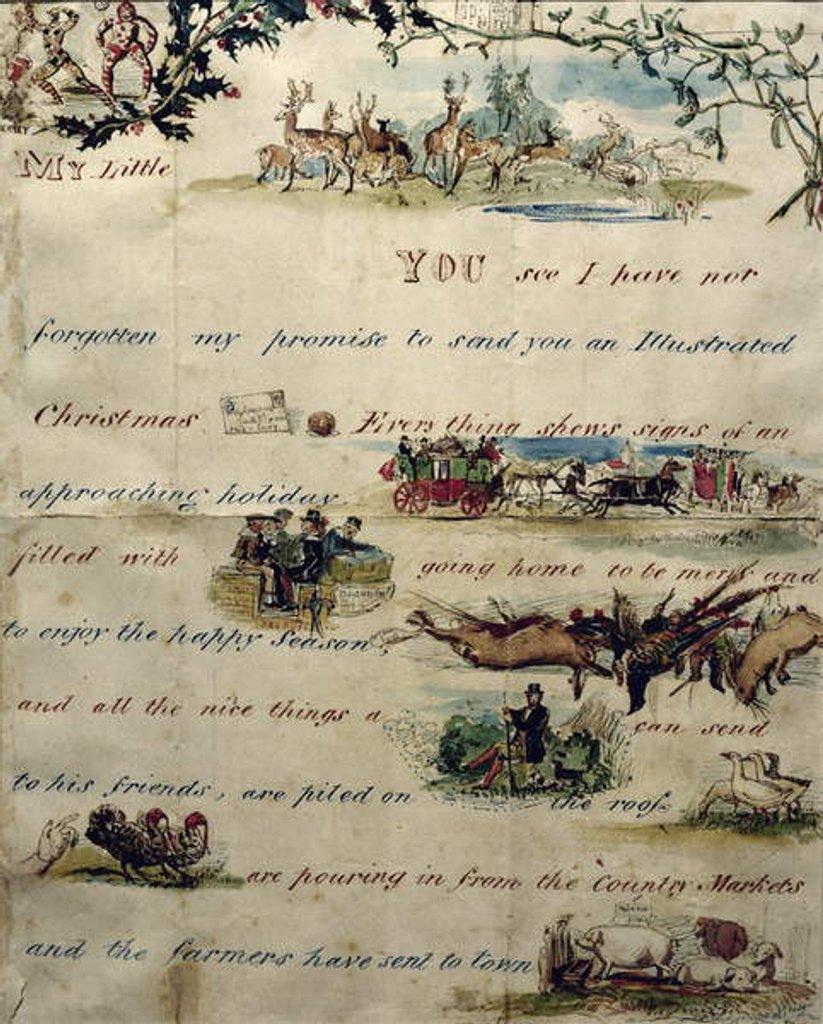 My Little
YOU see I have not
forgotten my promise to send you an Illustrated
Christmas Every thing shews signs of an
approaching holiday
filled with going home to be merry and
to enjoy the happy Season,
and all the nice things a can send
to his friends, are piled on the roof.
are pouring in from the Country Markets
and the farmers have sent to town